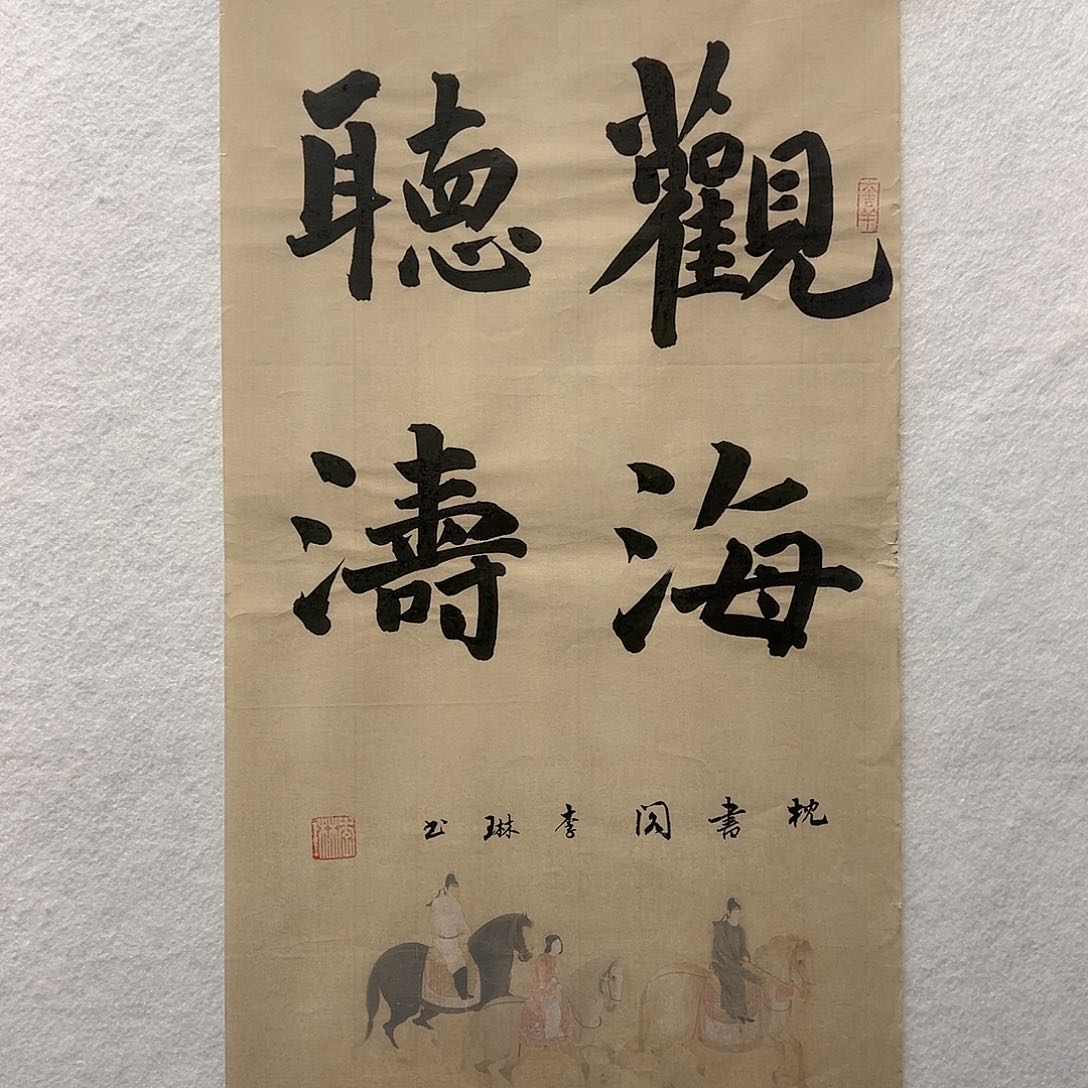 觀海
聽濤
枕書閣李琳书